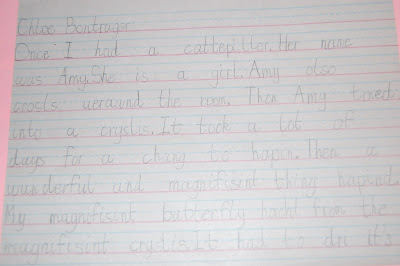 Chloe Bontrager
Once I had a cattepiller. Her name
was Amy. She is a girl. Amy also
crosls ueraund the room. Then Amy turned
into a cryslis. It took a lot of
days for a chang to hapin. Then a
wunderful and magnifisint thing hapind.
My magnifisint butterfly hacht from the
magnifisint cryslis It had to dri it's